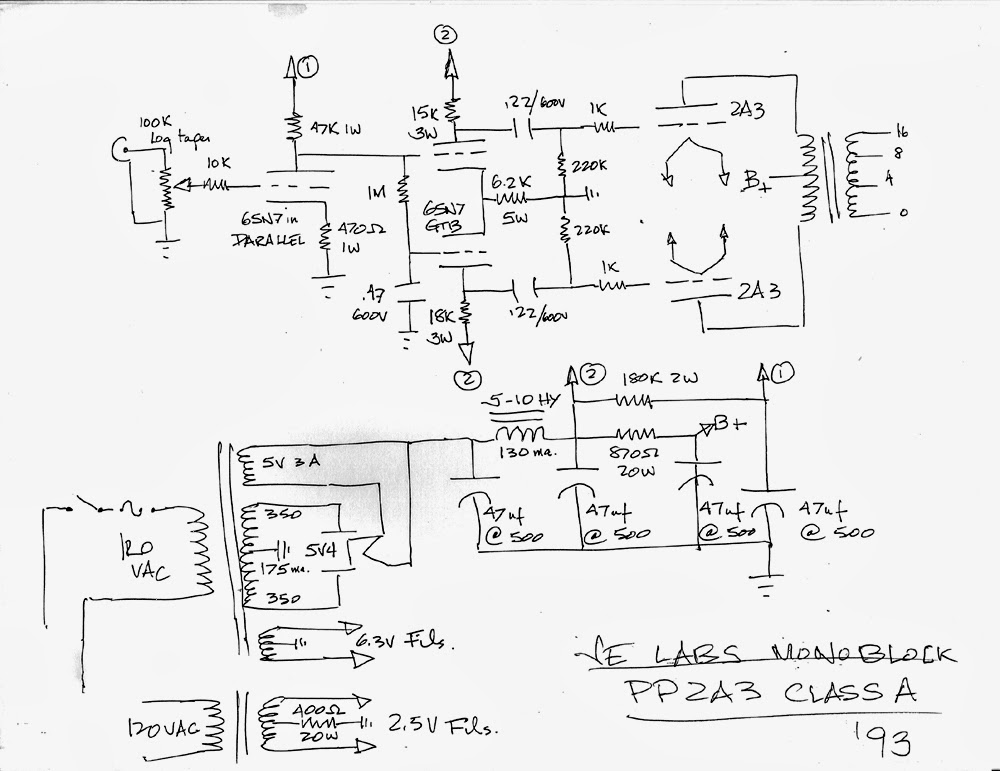 ②
①
100K
Log taper
47K 1W
15K
3W
.22/600V
1K
2A3
10K
1M
6.2K
5W
220K
B+
16
8
4
0
6SN7 in
PARALLEL
470Ω
1W
6SN7
GTB
220K
.47
600V
18K
3W
.22/600V
1K
2A3
②
5-10 HY
130 ma.
②
180K 2W
①
870Ω
20W
B+
47uf
@ 500
47uf
@ 500
47uf
@ 500
47uf
@ 500
5V 3A
350
5V4
175 ma.
350
120
VAC
6.3V Fils.
120VAC
400Ω
20W
2.5V Fils.
LABS MONOBLOCK
PP2A3 CLASS A
'93